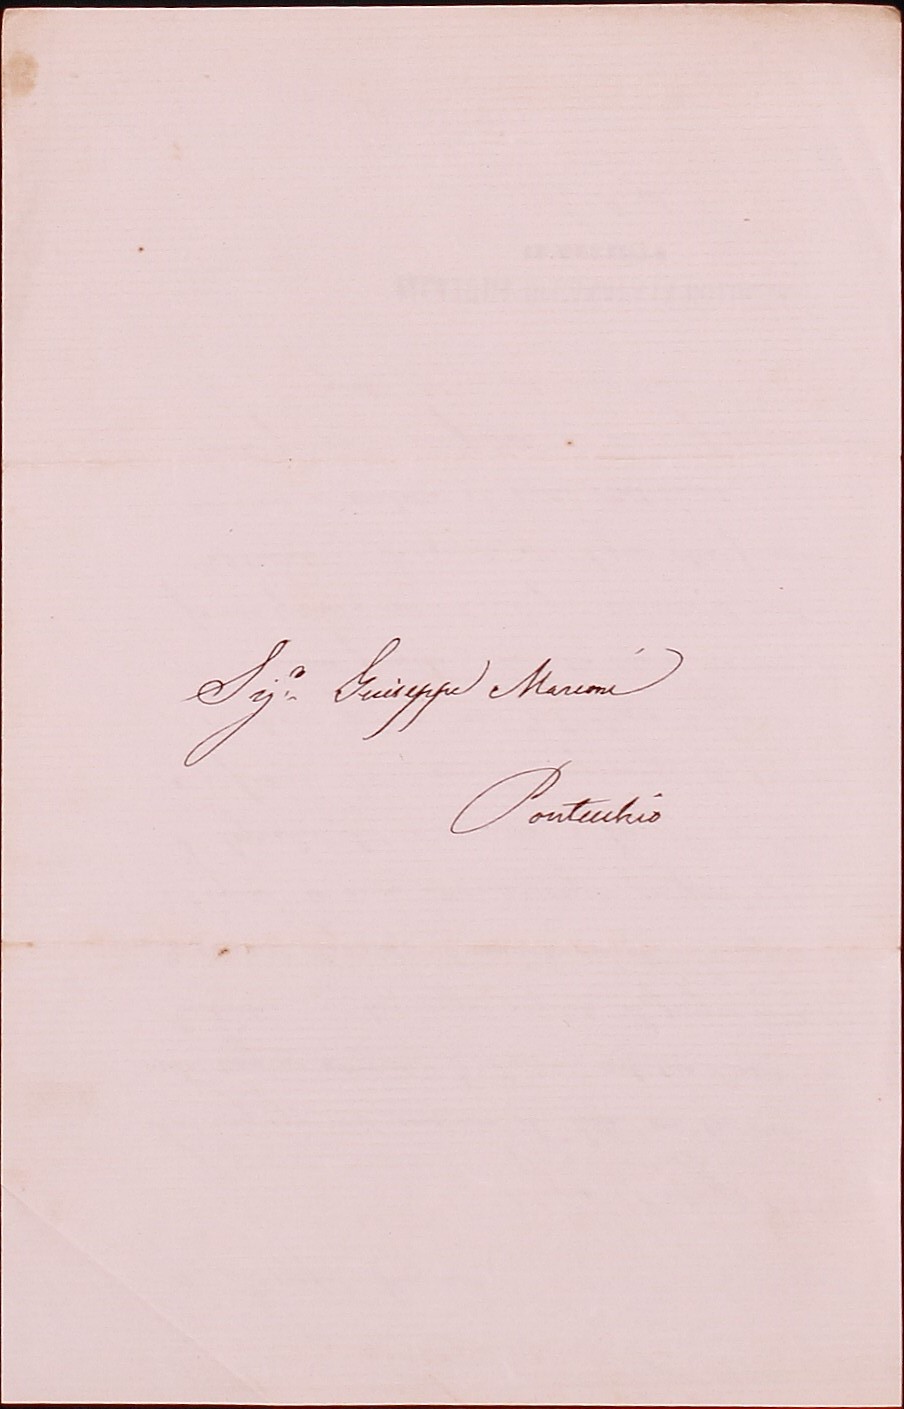 Sig.r Giuseppe Marconi
Pontecchio